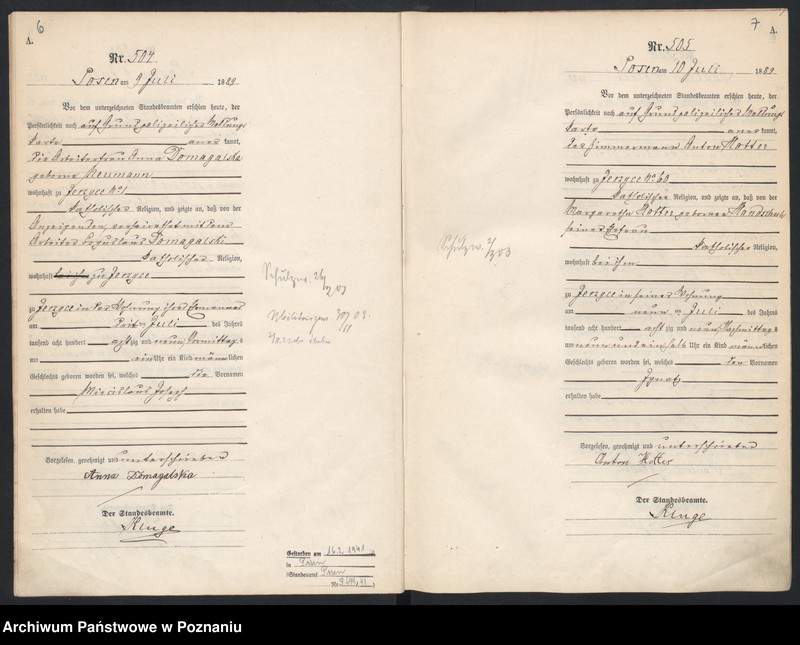 6
A.
Nr. 504
Posen am 9 Juli 1889
Vor dem unterzeichneten Standesbeamten erschien heute, der
Persönlichkeit nach auf Grund polizeilicher Meldungs
karte anerkannt,
die Arbeiterfrau Anna Domagalska
geborne Neumann
wohnhaft zu Jerzyce No 1
katholischer Religion, und zeigte an, daß von der
Anzeigenden, verheirathet mit dem
Arbeiter Boguslaus Domagalski
katholischer Religion,
wohnhaft bei ihm zu Jerzyce
zu Jerzyce in der Wohnung ihres Ehemannes
am Juli des Jahres
tausend acht hundert achtzig und neun Vormittags
um ein Uhr ein Kind männlichen
Geschlechts geboren worden sei, welches die Vornamen
Miecislaus Joseph
erhalten habe
Vorgelesen, genehmigt und unterschrieben
Anna Domagalska
Der Standesbeamte.
Kluge
Schulzw.
03
Gestorben am 16.2.1941
in Posen
Standesamt Posen
Nr.
7
A.
Nr. 505
Posen am 10 Juli 1889
Vor dem unterzeichneten Standesbeamten erschien heute, der
Persönlichkeit nach auf Grund polizeilicher Meldungs
karte anerkannt,
der Zimmermann Anton Kotter
wohnhaft zu Jerzyce No 60
katholischer Religion, und zeigte an, daß von der
Margaretha Kotter geborne
seiner Ehefrau
katholischer Religion,
wohnhaft bei ihm
zu Jerzyce in seiner Wohnung
am neun ten Juli des Jahres
tausend acht hundert achtzig und neun Nachmittags
um neun und ein halb Uhr ein Kind männlichen
Geschlechts geboren worden sei, welches den Vornamen
Ignatz
erhalten habe
Vorgelesen, genehmigt und unterschrieben
Anton Kotter
Der Standesbeamte.
Kluge
Schulzw.
03
Archiwum Państwowe w Poznaniu